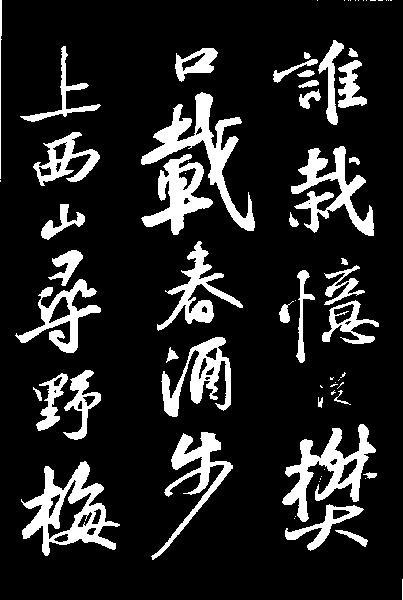 誰栽憶從樊
口載春酒步
上西山尋野梅